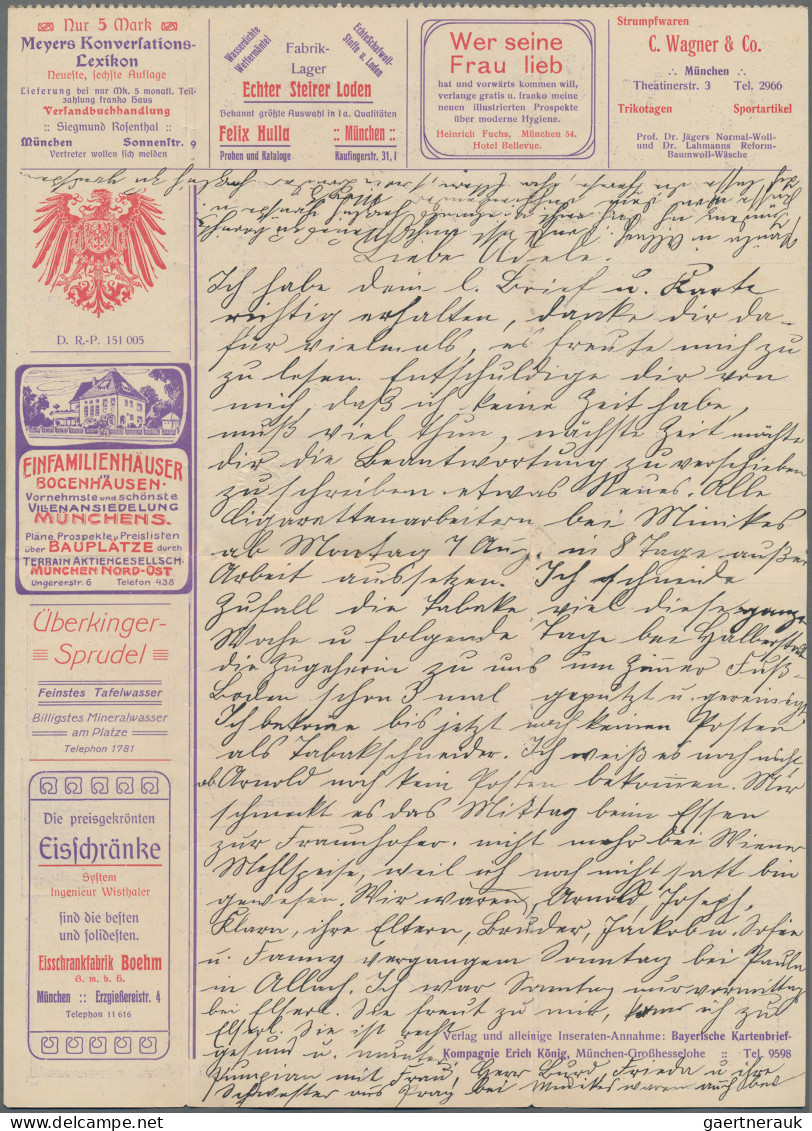 Nur 5 Mark
Meyers Konversations-
Lexikon
Neueste, sechste Auflage
Lieferung bei nur Mk. 5 monatl. Teil-
zahlung franko Haus
Versandbuchhandlung
:: Siegmund Rosenthal ::
München Sonnenstr. 9
Vertreter wollen sich melden
Wasserdichte
Wettermäntel
Fabrik-
Lager
Echte Schafwoll-
Stoffe u. Loden
Echter Steirer Loden
Bekannt größte Auswahl in Ia. Qualitäten
Felix Hulla :: München ::
Proben und Kataloge Kaufingerstr. 31, I
Wer seine
Frau lieb
hat und vorwärts kommen will,
verlange gratis u. franko meine
neuen illustrierten Prospekte
über moderne Hygiene.
Heinrich Fuchs, München 54.
Hotel Bellevue.
Strumpfwaren
C. Wagner & Co.
∴ München ∴
Theatinerstr. 3 Tel. 2966
Trikotagen Sportartikel
Prof. Dr. Jägers Normal-Woll-
und Dr. Lahmanns Reform-
Baumwoll-Wäsche
D. R.-P. 151 005
EINFAMILIENHÄUSER
IN
BOGENHAUSEN·
Vornehmste und schönste
VILLENANSIEDELUNG
MÜNCHENS.
Pläne, Prospekte, Preislisten
über BAUPLÄTZE durch
TERRAIN AKTIENGESELLSCH.
MÜNCHEN NORD-OST
Ungererstr. 6 Telefon 438
Überkinger-
Sprudel
Feinstes Tafelwasser
Billigstes Mineralwasser
am Platze
Telephon 1781
Die preisgekrönten
Eisschränke
System
Ingenieur Wisthaler
sind die besten
und solidesten.
Eisschrankfabrik Boehm
G. m. b. H.
München :: Erzgießereistr. 4
Telephon 11 616
Liebe Adele.
Ich habe dein l. Brief u. Karte
richtig erhalten, danke dir da-
für vielmals, es freute mich zu
zu lesen. Entschuldige dir von
mich, daß ich keine Zeit habe,
muß viel thun, nächste Zeit möchte
dir die Beantwortung zu verschieben
zu schreiben etwas Neues. Alle
Cigarettenarbeitern bei Minikes
ab Montag 7 Aug. in 8 Tage außer
Arbeit aussetzen. Ich schneide
Zufall die Tabake viel diese ganze
Woche u folgende Tage bei
die Zugeherin zu uns um Zimmer Fuß-
Boden schon 3 mal geputzt u. gereinigt
Ich bekome bis jetzt noch keinen Posten
als Tabakschneider. Ich weiß es noch nicht
ob Arnold noch kein Posten bekommen. Mir
schmeckt es das Mittag beim Essen
zur Fraunhofer. nicht mehr bei Wiener
Mehlspeise, weil ich noch nicht satt bin
gewesen. Wir waren, Arnold, Joseph,
Klara, ihre Eltern, Bruder, Jackob u. Sofie
u. Fanny vergangem Sonntag bei Paula
in Allach. Ich war Samtag nur vormittag
bei Elserl. Sie freut zu mir, ich zu
Elserl. Sie ist recht
gesund u. munter.
Pumpian mit Frau, Herr Burd, Frieda u ihre
Schwester aus Prag bei Minikes waren auch
Verlag und alleinige Inseraten-Annahme: Bayerische Kartenbrief-
Kompagnie Erich König, München-Großhesselohe :: Tel. 9598
www.gaertnerauk.com